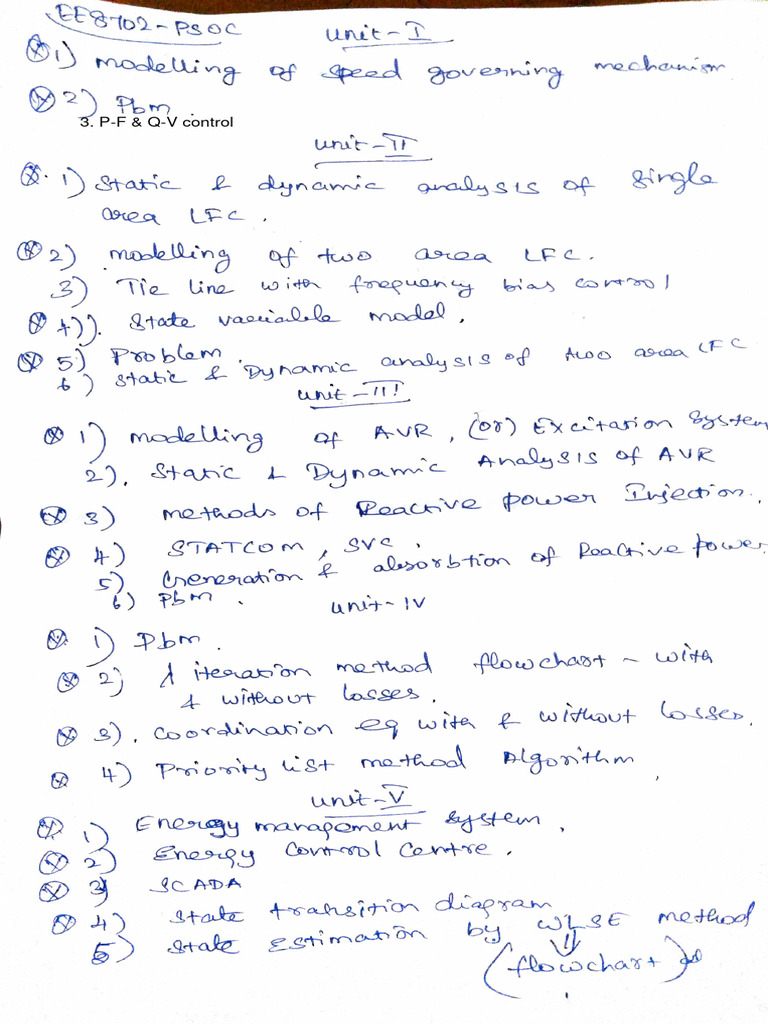 EE8702-PSOC unit-I
1) modelling of speed governing mechanism
2) Pbm.
3. P-F & Q-V control
unit-II
1) Static & dynamic analysis of single
area LFC.
2) modelling of two area LFC.
3) Tie line with frequency bias control
4)). State variable model.
5) Problem.
6) Static & Dynamic analysis of two area LFC
unit-III
1) modelling of AVR, (or) Excitation System
2). Static & Dynamic Analysis of AVR
3) methods of Reactive power Injection.
4) STATCOM, SVC.
5) Generation & absorbtion of Reactive power.
6) Pbm.
unit-IV
1) Pbm.
2) λ iteration method flowchart - with
& without losses.
3). Coordination eq with & without losses.
4) Priority list method Algorithm
unit-V
1) Energy management system.
2) Energy Control Centre.
3) SCADA
4) State transition diagram
5) State Estimation by WLSE method
⇓
(flowchart)